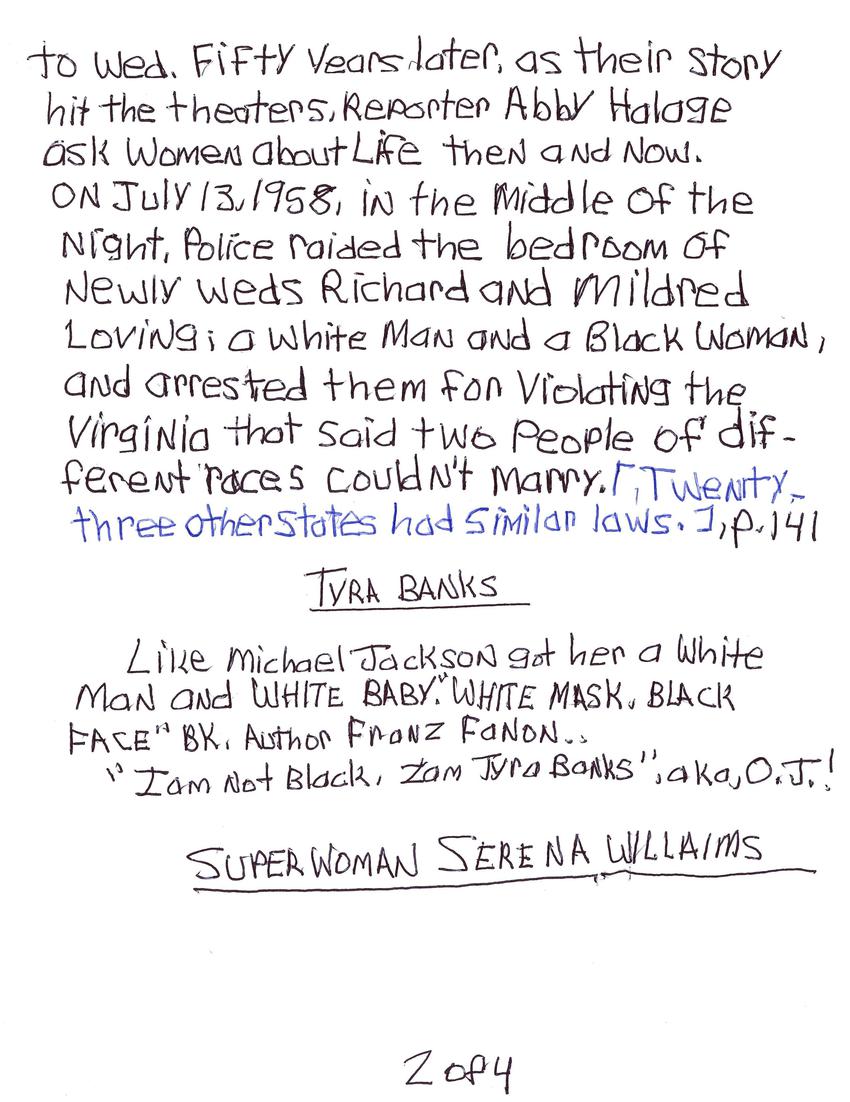 to wed. Fifty years later, as their story
hit the theaters, Reporter Abby Halage
ask Women about Life then and Now.
ON July 13, 1958, in the Middle of the
Night, Police raided the bedroom of
Newly weds Richard and Mildred
Loving; a White Man and a Black Woman,
and arrested them for Violating the
Virginia that said two People of dif-
ferent races couldn't marry. [, Twenty-
three other states had similar laws. ], p. 141
TYRA BANKS
Like Michael Jackson got her a White
Man and WHITE BABY. "WHITE MASK, BLACK
FACE" BK. Author Franz Fanon..
"I am Not Black, I am Tyra Banks", aka, O.J.!
SUPERWOMAN SERENA WILLAIMS
2 of 4